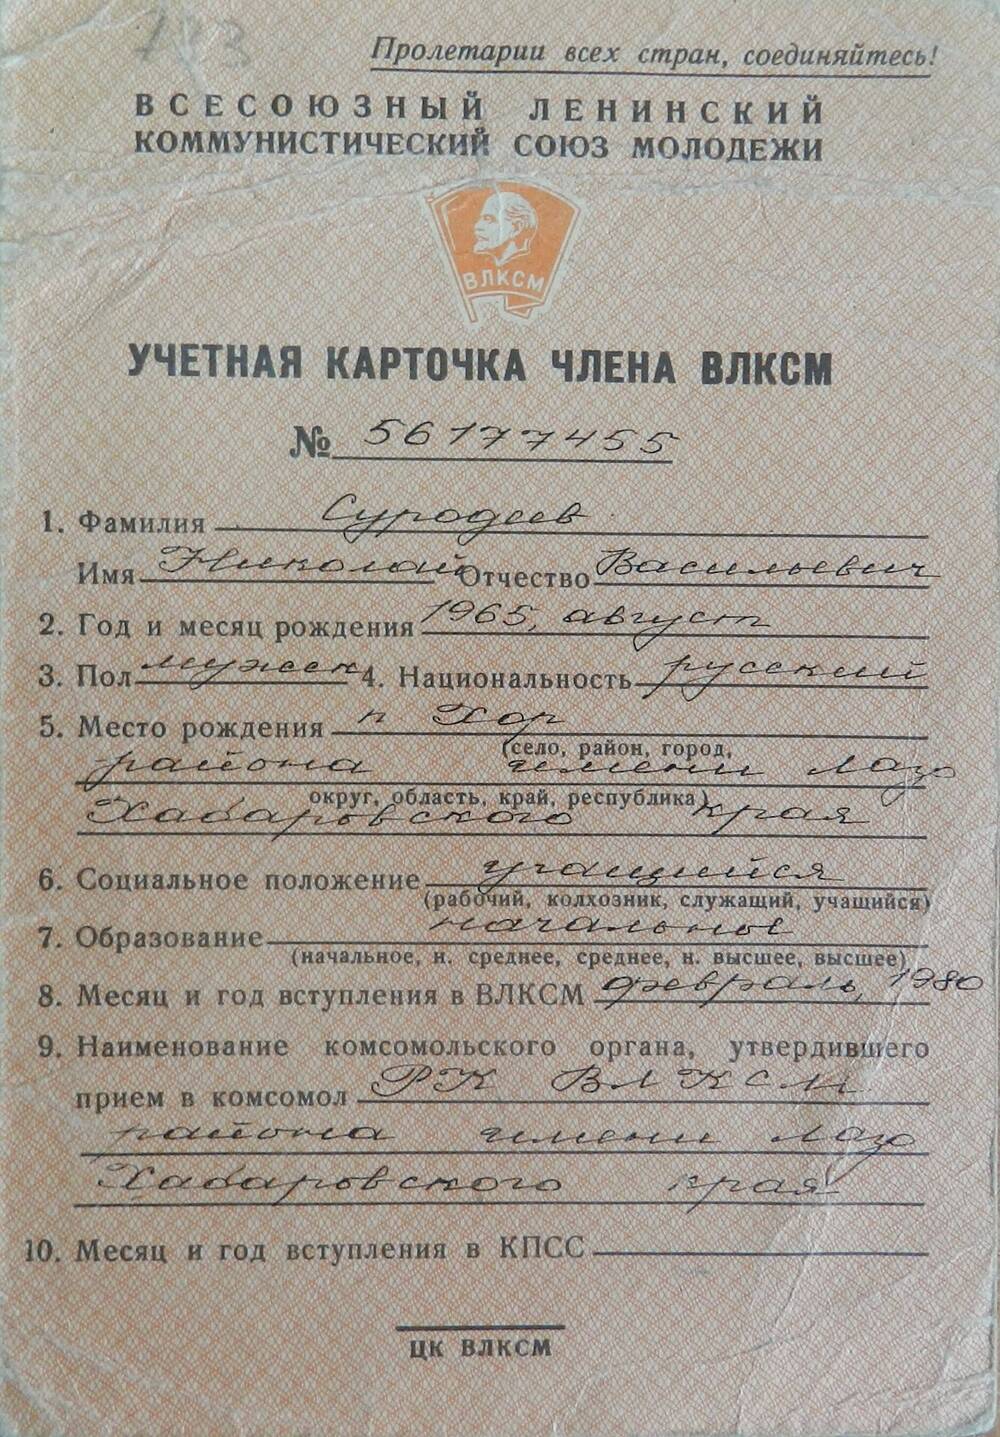 743
Пролетарии всех стран, соединяйтесь!
ВСЕСОЮЗНЫЙ ЛЕНИНСКИЙ
КОММУНИСТИЧЕСКИЙ СОЮЗ МОЛОДЕЖИ
ВЛКСМ
УЧЕТНАЯ КАРТОЧКА ЧЛЕНА ВЛКСМ
№ 56177455
1. Фамилия Суродеев
Имя Николай Отчество Васильевич
2. Год и месяц рождения 1965, август
3. Пол мужск 4. Национальность русский
5. Место рождения п Хор
(село, район, город,
района имени Лазо
округ, область, край, республика)
Хабаровского края
6. Социальное положение учащийся
(рабочий, колхозник, служащий, учащийся)
7. Образование начальное
(начальное, н. среднее, среднее, н. высшее, высшее)
8. Месяц и год вступления в ВЛКСМ февраль, 1980
9. Наименование комсомольского органа, утвердившего
прием в комсомол РК ВЛКСМ
района имени Лазо
Хабаровского края
10. Месяц и год вступления в КПСС
ЦК ВЛКСМ